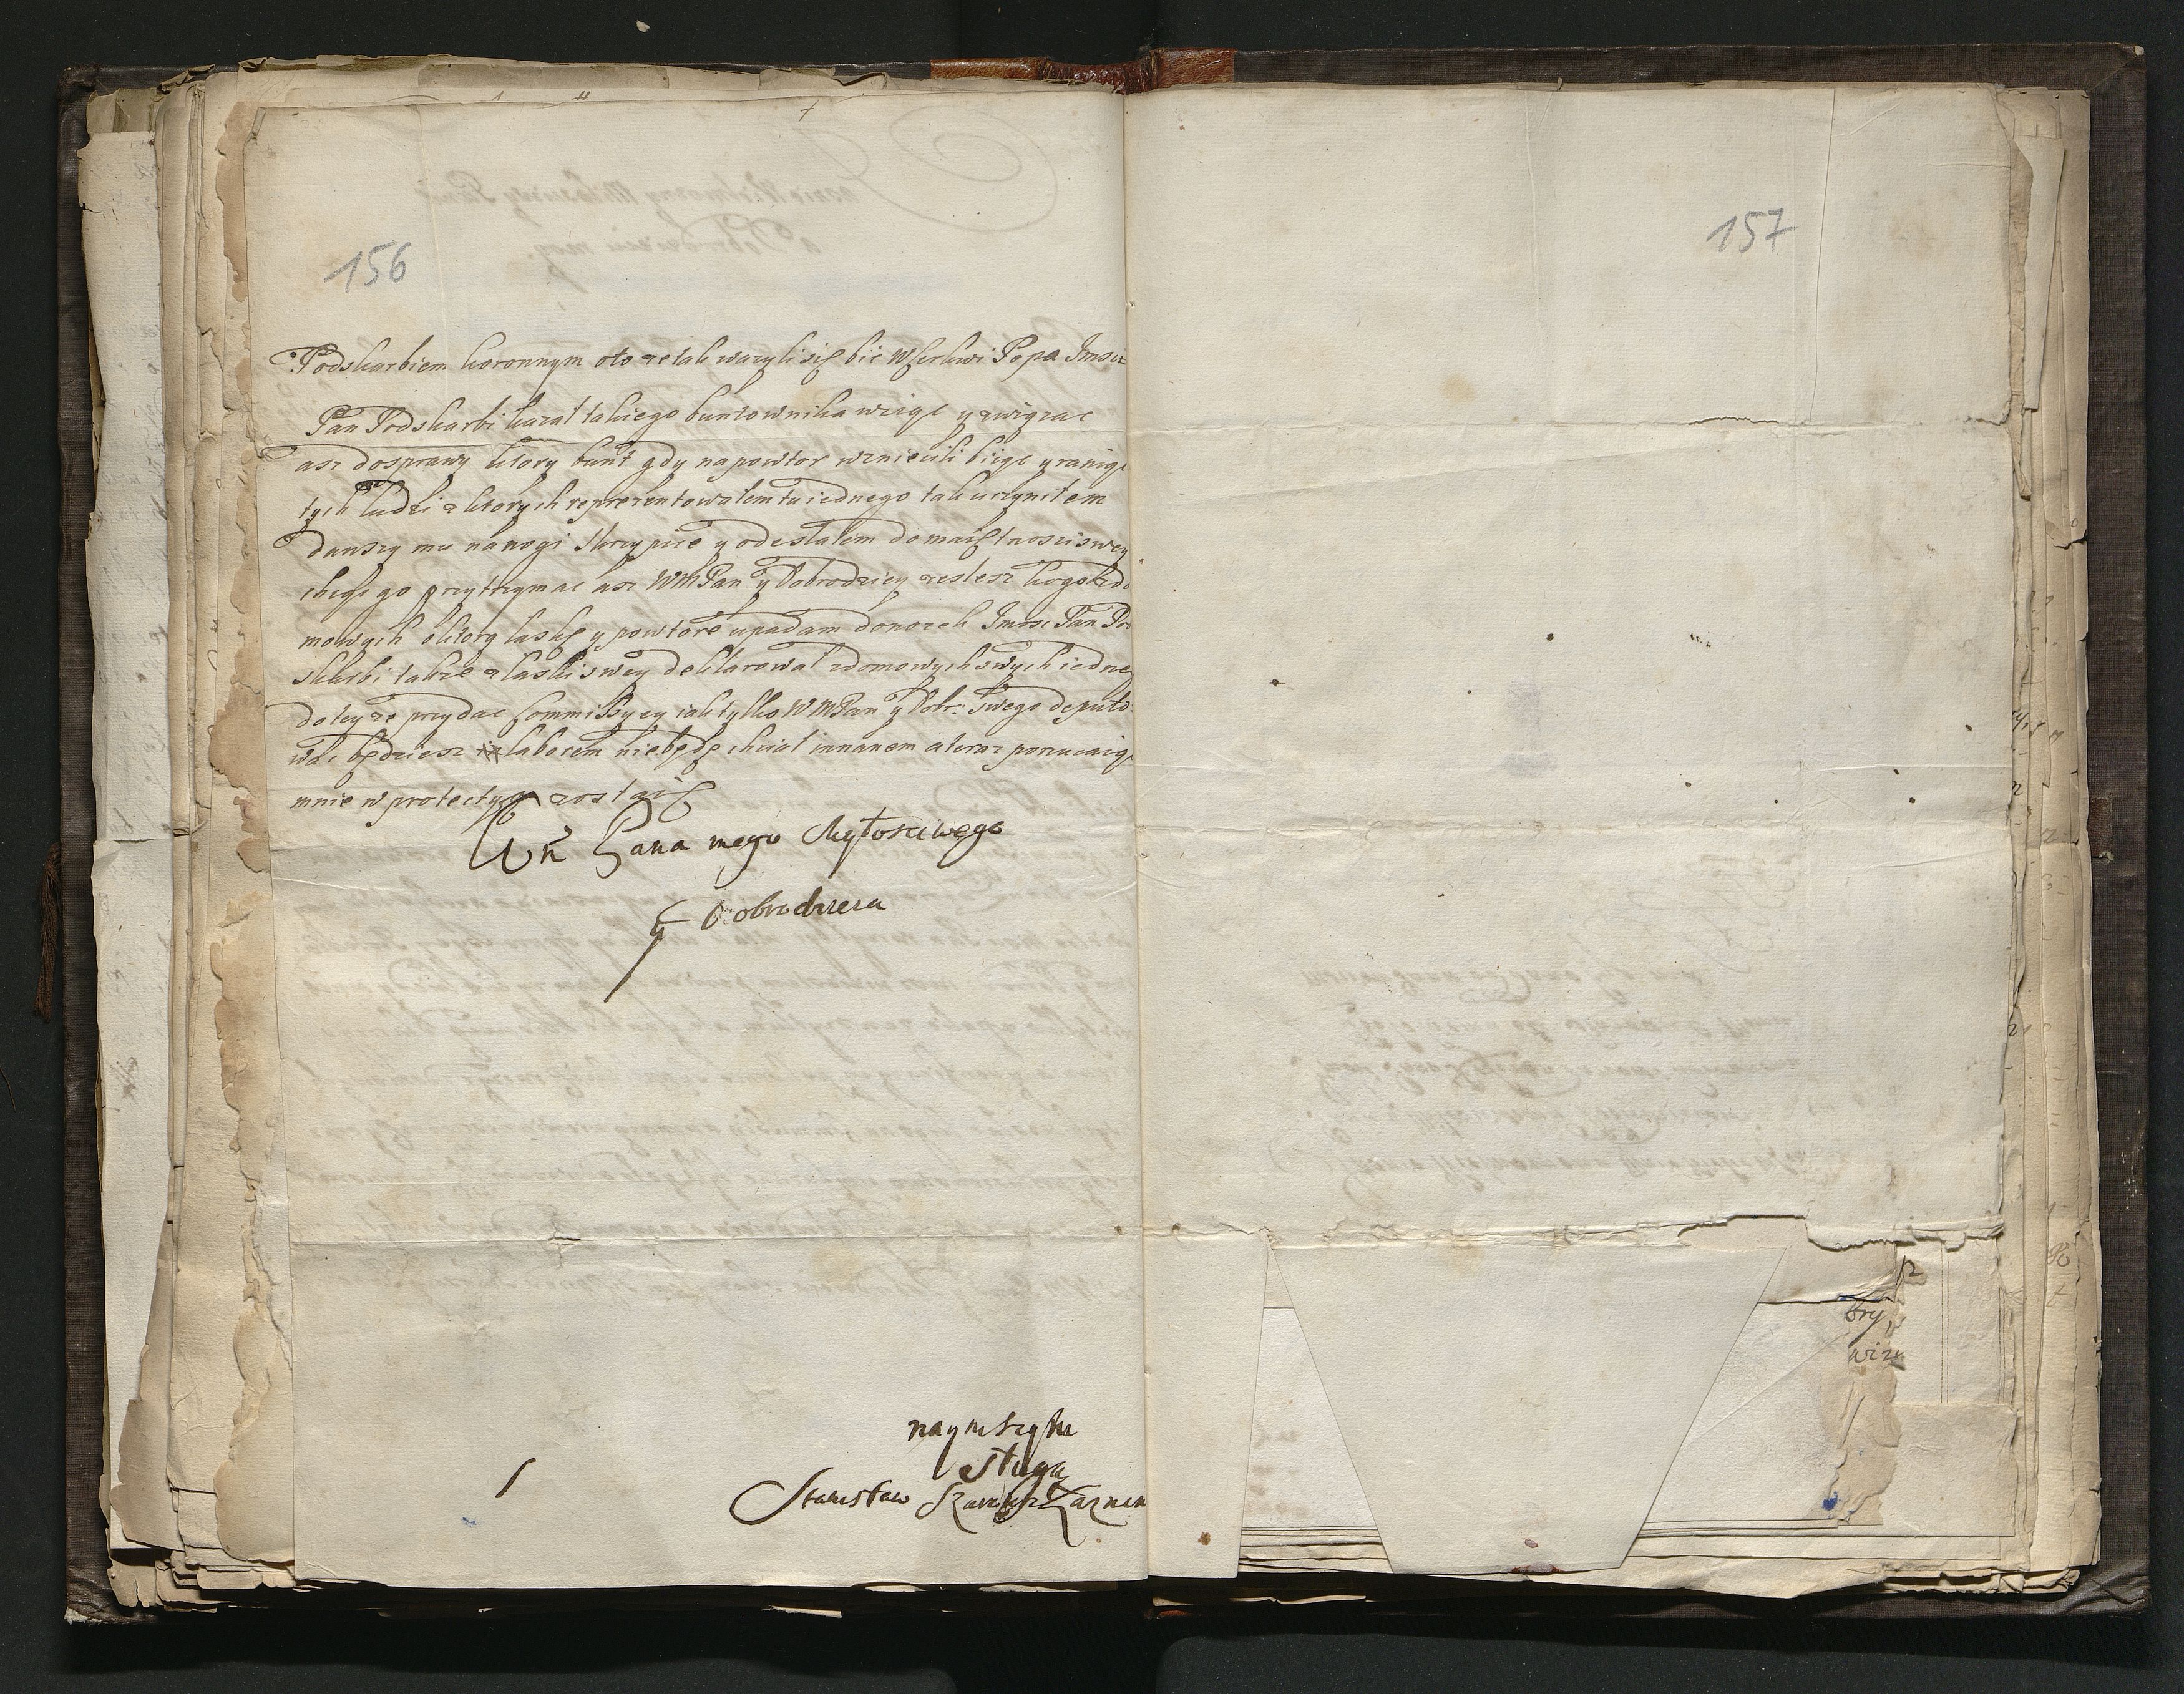 156
157
Podskarbiem koronnym oto ze tak wazyli się bic w Cerkwi Popa Imsc
Pan Podskarbi kazał takiego buntownika wziąc y związac
asz dosprawy ktory bunt gdy napowtor wzniecili biiąc y raniąc
tych ludzi z ktorych reprezentowałem tu iednego tak uczyniłem
dawszy mu nanogi skrzypice y odesłałem do maiętnosci swey
chcąc go przytrzymac asz WMPan y Dobrodziey zeslesz kogo zdo
mowych o ktorą łaskę y powtore upadam donozek Imsc Pan Pod
skarbi takze z łaski swey deklarował zdomowych swych iedne
do tey ze przydac Commissyey iak tylko WMPan y Dobr: swego deputo
wac będziesz laborem niebędę chciał innanem a teraz porucaiąc
mnie w protectyą zostaię
Wm Pana mego Mgłosciwego
y Dobrodzieia
nayniszszy
sługa
Stanisław
bry
wiz